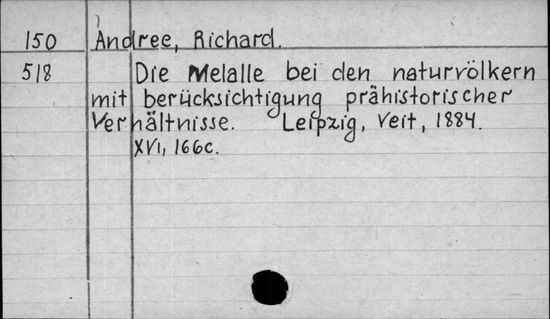 150 Andree, Richard.
518 Die Melalle bei den naturvölkern
mit berücksichtigung prähistorischer
Verhältnisse. Leipzig, Veit, 1884.
XVI, 166c.